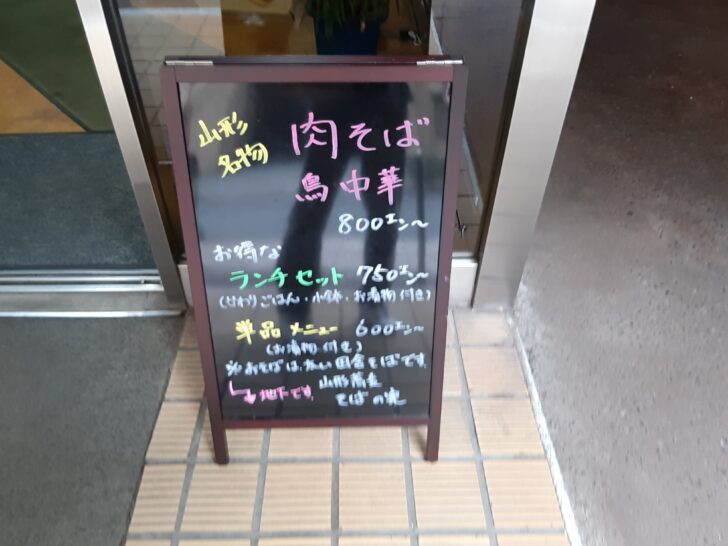 山形名物
肉そば
鳥中華
800エン〜
お得な
ランチセット 750エン〜
(ごはん・小鉢・お漬物付き)
単品メニュー 600エン〜
(お漬物付き)
※おそばは、太い田舎そばです。
山形蕎麦
↳地下です。 そばの